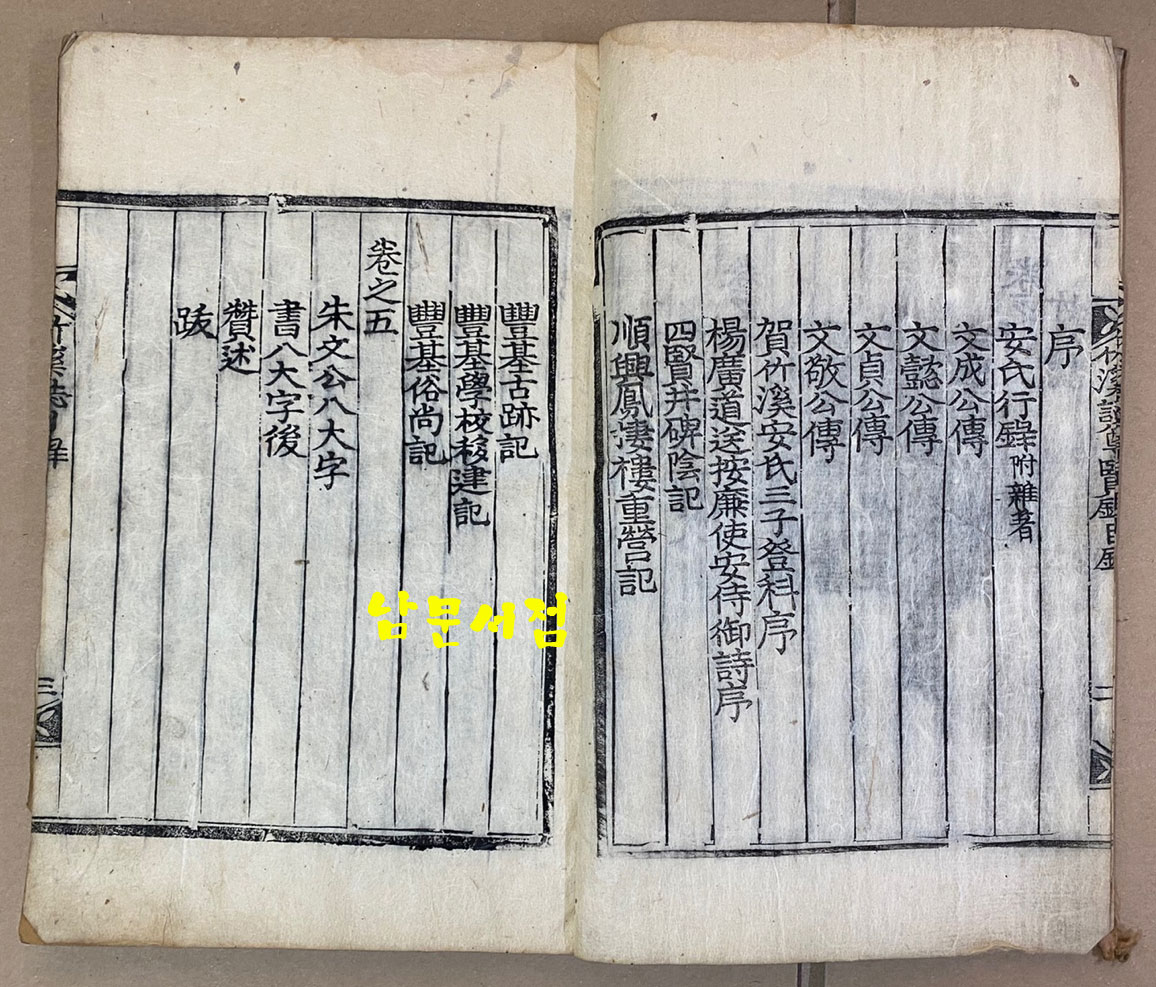 序
安氏行錄 附雜著
文成公傳
文懿公傳
文貞公傳
文敬公傳
賀竹溪安氏三子登科序
楊廣道送按廉使安侍御詩序
四賢井碑陰記
順興鳳捿樓重營記
豐基古跡記
豐基學校移建記
豐基俗尚記
卷之五
朱文公八大字
書八大字後
贊述
跋
三
남문서점